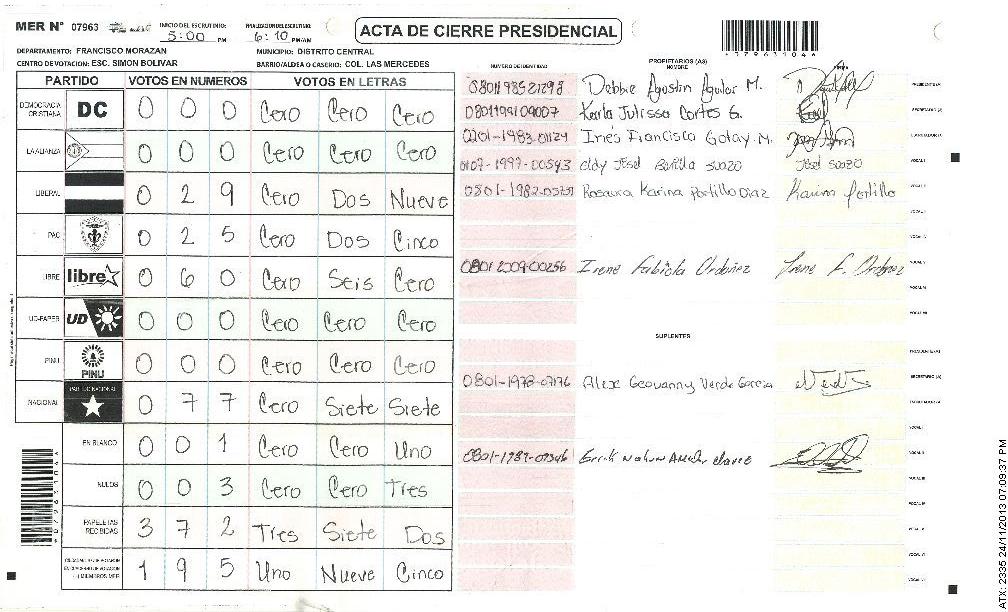 MER N° 07963
INICIO DEL ESCRUTINIO:
5:00 PM
6:10 PM/AM
ACTA DE CIERRE PRESIDENCIAL
DEPARTAMENTO: FRANCISCO MORAZAN
MUNICIPIO: DISTRITO CENTRAL
CENTRO DE VOTACION: ESC. SIMON BOLIVAR
BARRIO/ALDEA O CASERIO: COL. LAS MERCEDES
PARTIDO VOTOS EN NUMEROS VOTOS EN LETRAS
DEMOCRACIA CRISTIANA DC 0 0 0 Cero Cero Cero
LA ALIANZA 0 0 0 Cero Cero Cero
LIBERAL 0 2 9 Cero Dos Nueve
PAC 0 2 5 Cero Dos Cinco
LIBRE libre 0 6 0 Cero Seis Cero
UD-FAPER UD 0 0 0 Cero Cero Cero
PINU PINU 0 0 0 Cero Cero Cero
NACIONAL PARTIDO NACIONAL 0 7 7 Cero Siete Siete
EN BLANCO 0 0 1 Cero Cero Uno
NULOS 0 0 3 Cero Cero Tres
PAPELETAS RECIBIDAS 3 7 2 Tres Siete Dos
1 9 5 Uno Nueve Cinco
NUMERO DE IDENTIDAD
PROPIETARIOS (AS)
NOMBRE
FIRMA
Debbie Agustin Aguilar M. PRESIDENTE (A)
Karla Julissa Cortes G. SECRETARIO (A)
Inés Francisca Gotay M. ESCRUTADOR (A)
0107-1997-00593 José Suazo VOCAL I
Rosaura Karina Portillo Diaz Karina Portillo
0801 2009-00256 Irene Fabiola Ordoñez Irene F. Ordoñez
SUPLENTES
PRESIDENTE (A)
0801-1978-07176 Alex Geovanny Verde Garcia SECRETARIO (A)
ESCRUTADOR (A)
VOCAL I
ATX: 2335 24/11/2013 07:09:37 PM